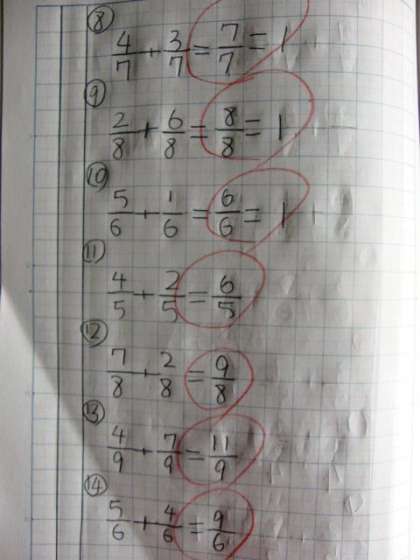 ⑧
4/7 + 3/7 = 7/7 = 1
⑨
2/8 + 6/8 = 8/8 = 1
⑩
5/6 + 1/6 = 6/6 = 1
⑪
4/5 + 2/5 = 6/5
⑫
7/8 + 2/8 = 9/8
⑬
4/9 + 7/9 = 11/9
⑭
5/6 + 4/6 = 9/6